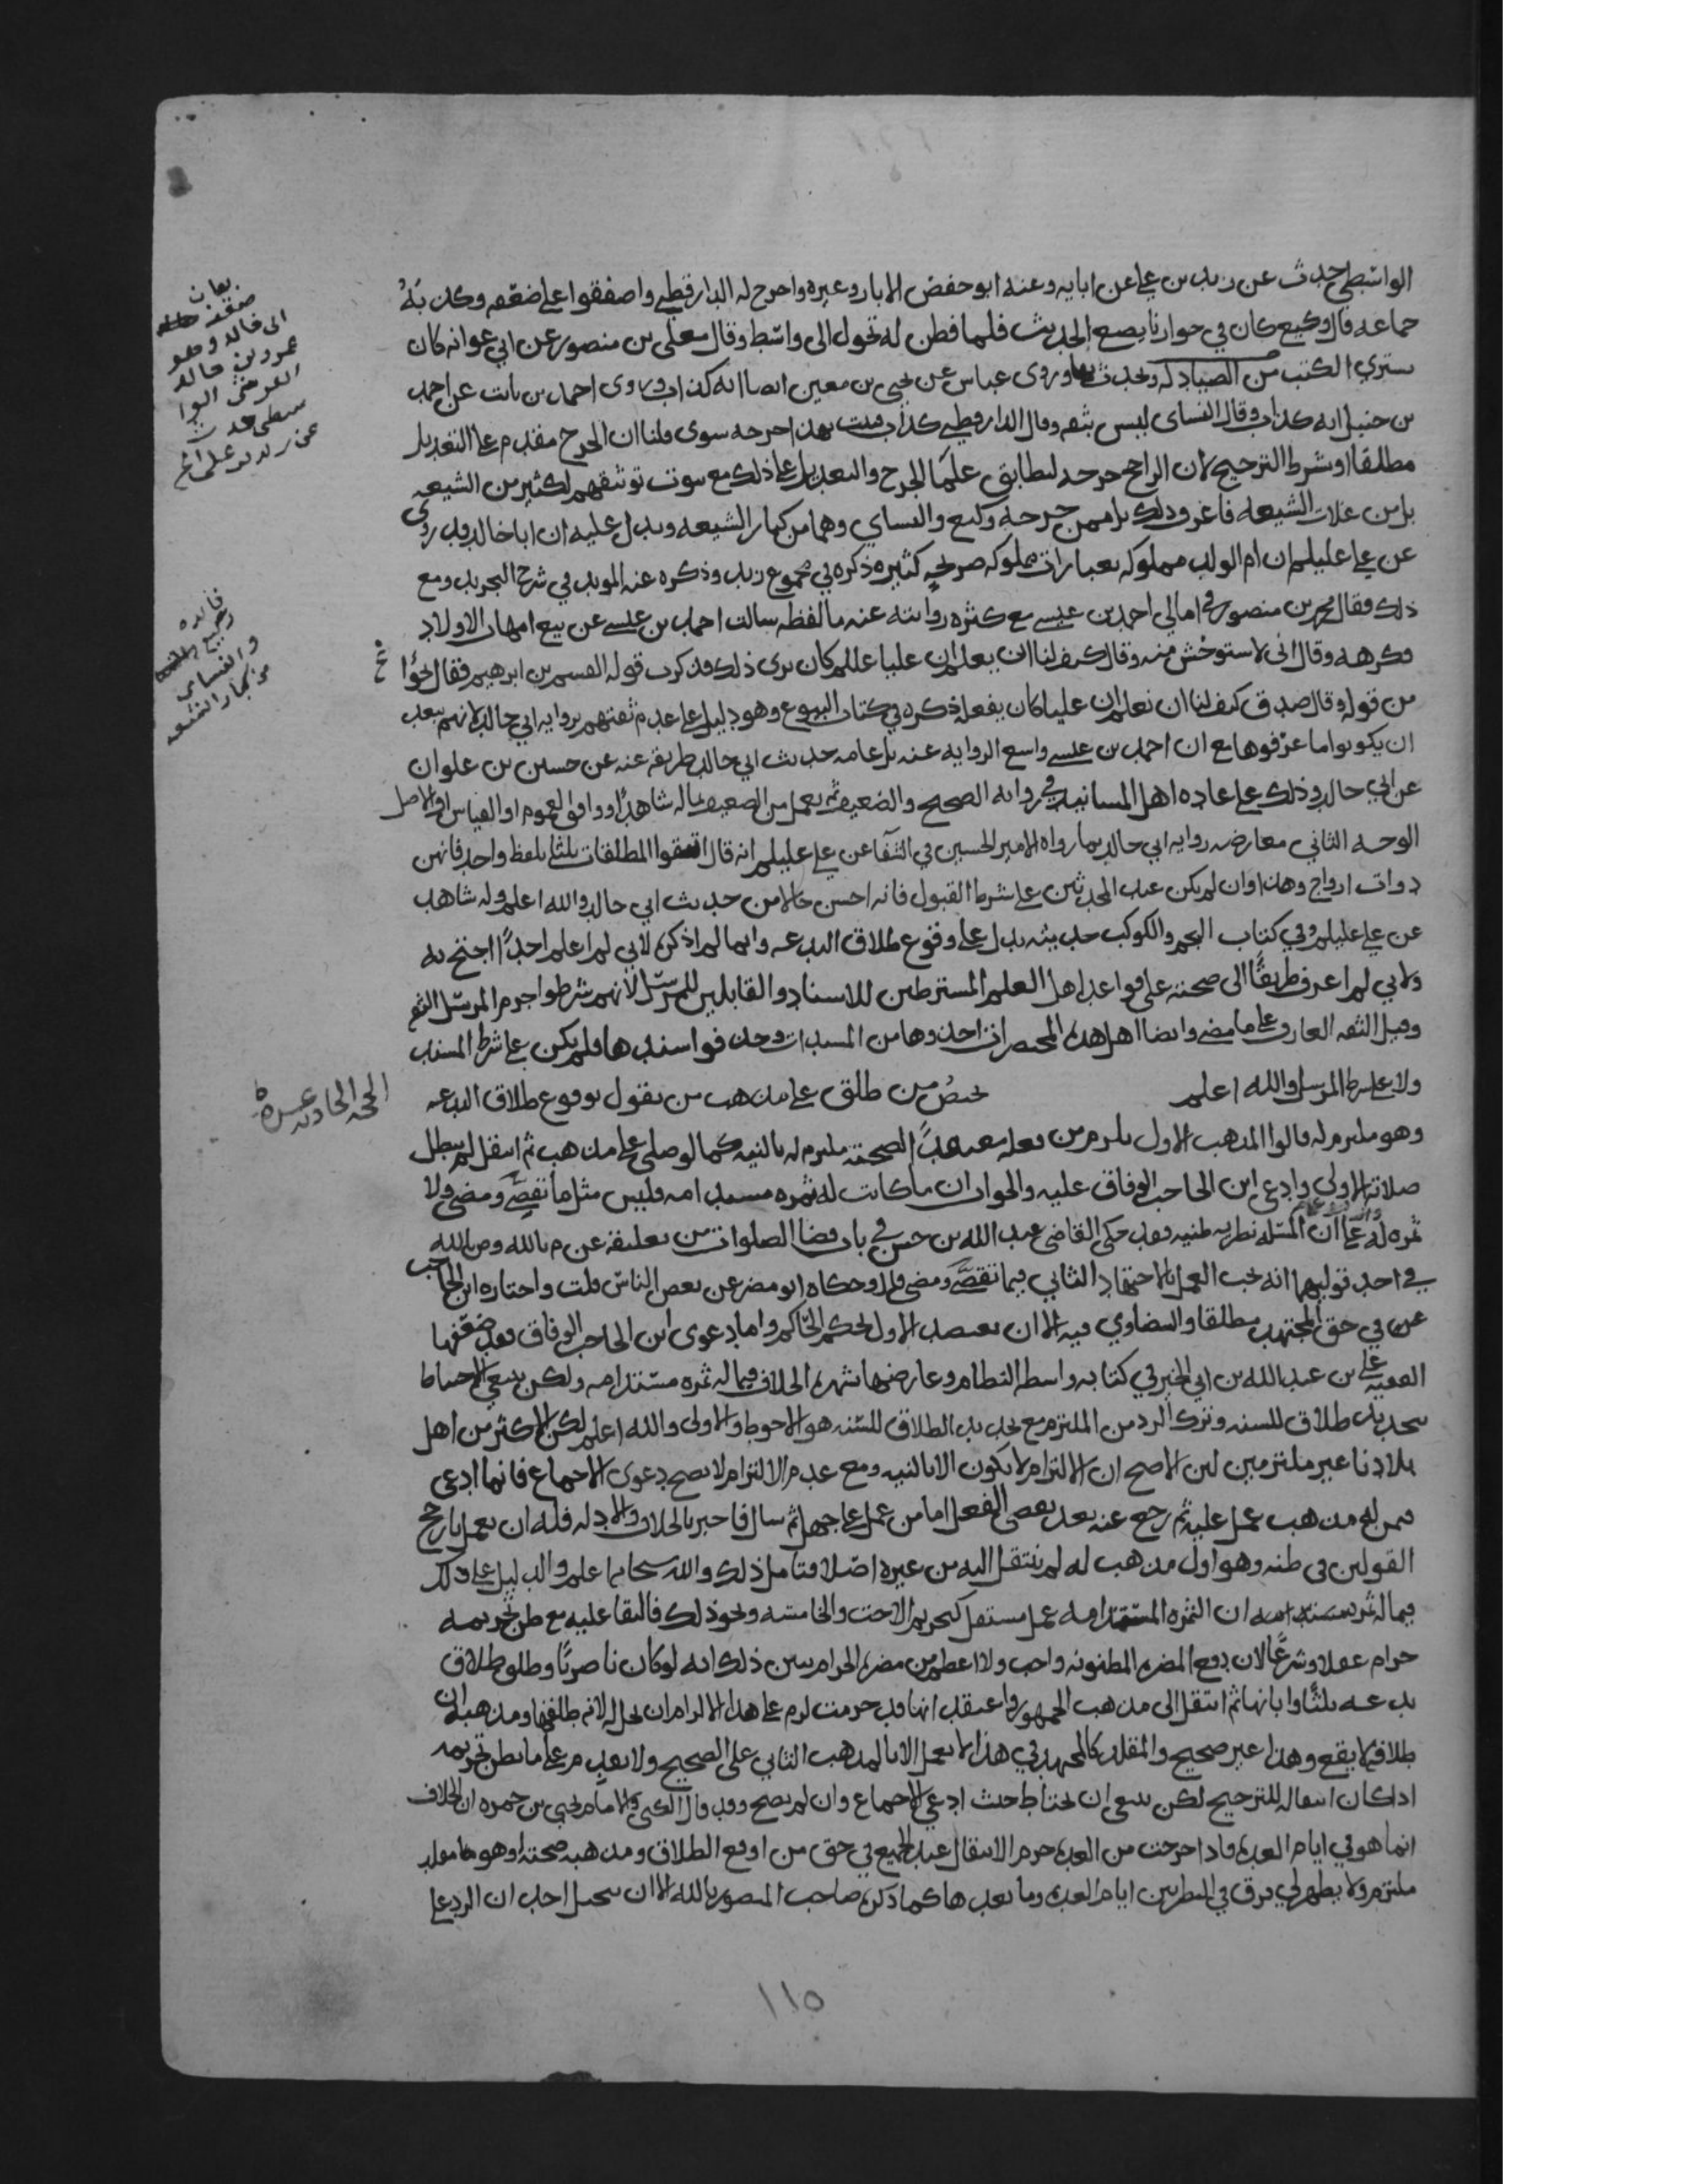 الواسطي حدث عن زيد بن علي عن ابايه وعنه ابو حفص الابار وغيره واخرج له الدارقطني واصفقوا على ضعفه وكذبه
جماعه قال وكيع كان في جوارنا يضع الحديث فلما فطن له تحول الى واسط وقال معلى بن منصور عن ابي عوانه كان
يشتري الكتب من الصيادله ويحدث بها وروى عباس عن يحيى بن معين ايضا انه كذاب وروى احمد بن ثابت عن احمد
بن حنبل انه كذاب وقال النساي ليس بثقه وقال الدارقطني كذاب قلت بهذا جرحه سوى قلنا ان الجرح مقدم على التعديل
مطلقا او شرط الترجيح لان الراجح جرحه لتطابق علما الجرح والتعديل على ذلك مع ثبوت توثيقهم لكثير من الشيعه
بل من غلات الشيعه فاعرف ذلك بل ممن جرحه وكيع والنساي وهما من كبار الشيعه ويدل عليه ان ابا خالد قد روى
عن علي عليلم ان ام الولد مملوكه بعبارات مملوكه صريحه كثيره ذكره في مجموع زيد وذكره عنه المويد في شرح التجريد ومع
ذلك فقال محمد بن منصور في امالي احمد بن عيسى مع كثره روايته عنه ما لفظه سالت احمد بن عيسى عن بيع امهات الاولاد
فكرهه وقال اني لاستوحش منه وقال كيف لنا ان نعلم ان عليا عللم كان يرى ذلك فذكرت قوله القسم بن ابرهيم فقال نحوا
من قوله وقال صدق كيف لنا ان نعلم ان عليا كان يفعله ذكره في كتاب البيوع وهو دليل على عدم ثقتهم بروايه ابي خالد لانهم يبعد
ان يكونوا ما عرفوها مع ان احمد بن عيسى واسع الروايه عنه بل عامه حديث ابي خالد طريقه عنه عن حسين بن علوان
عن ابي خالد وذلك على عاده اهل المسانيد في روايه الصحيح والضعيف ثم يعمل من الضعيف بما له شاهد او وافق العموم او القياس او الاصل
الوجه الثاني معارضه روايه ابي خالد بما رواه الامير الحسين في الشفا عن علي عليلم انه قال اتقوا المطلقات ثلثا بلفظ واحد فانهن
ذوات ازواج وهذا وان لم يكن عند المحدثين على شرط القبول فانه احسن حالا من حديث ابي خالد والله اعلم وله شاهد
عن علي عليلم وفي كتاب النجم والكوكب حديثه يدل على وقوع طلاق البدعه وانما لم اذكره لاني لم اعلم احدا احتج به
ولاني لم اعرف طريقا الى صحته على قواعد اهل العلم المشترطين للاسناد والقابلين للمرسل لانهم شرطوا جزم المرسل الثقه
وقيل الثقه العارف على ما مضى وايضا اهل هذه المختصرات اخذوها من المسندات وحذفوا سندها فلم يكن على شرط المسند
ولا على شرط المرسل والله اعلم يخص من طلق على مذهب من يقول بوقوع طلاق البدعه
وهو ملتزم له قالوا المذهب الاول يلزم من فعله معتقدا لصحته ملتزم له بالنيه كما لو صلى على مذهب ثم انتقل لم تبطل
صلاته الاولى وادعى ابن الحاجب الوفاق عليه والجواب ان ما كانت له ثمره مستدامه فليس مثل ما تقضى ومضى ولا
ثمره له على ان المسئله نظريه ظنيه فقد حكى القاضي عبد الله بن حسن في باب قضا الصلوات من تعليقه عن م بالله وص بالله
في احد قوليهما انه يجب العمل بالاجتهاد الثاني فيما تقضى ومضى وحكاه ابو مضر عن بعض الناس قلت واختاره ابن الحاجب
في حق المجتهد مطلقا والبيضاوي فيه الا ان يتصل الاول بحكم الحاكم واما دعوى ابن الحاجب الوفاق فقد ضعفها
الفقيه علي بن عبد الله بن ابي الخير في كتابه واسطه النظام وعارضها بشهره الخلاف فيما له ثمره مستدامه ولكن ينبغي الاحتياط
بتجديد طلاق للسنه وترك الرد من الملتزم مع تجديد الطلاق للسنه هو الاحوط والاولى والله اعلم لكن الاكثر من اهل
بلادنا غير ملتزمين لان الاصح ان الالتزام لا يكون الا بالنيه ومع عدم الالتزام لا يصح دعوى الاجماع فانما ادعى
فمن له مذهب عمل عليه ثم رجع عنه بعد بعض الفعل اما من عمل على جهل ثم سال فاخبر بالخلاف والادله فله ان يعمل بارجح
القولين في ظنه وهو اول مذهب له لم ينتقل اليه من غيره اصلا فتامل ذلك والله سبحانه اعلم والدليل على ذلك
فيما له ثمره مستدامه ان الثمره المستدامه عمل مستقل كتحريم الاخت والخامسه ونحو ذلك فالبقا عليه مع ظن تحريمه
حرام عقلا وشرعا لان دفع المضره المظنونه واجب ولا اعظم من مضره الحرام يبين ذلك انه لو كان ناصريا وطلق طلاق
بدعه ثلثا وابانها ثم انتقل الى مذهب الجمهور واعتقد انها قد حرمت لزم على هذا الالزام ان تحل له لانه طلقها ومذهبه ان
طلاقه لا يقع وهذا غير صحيح والمقلد كالمجتهد في هذا لا يعمل الا بالمذهب الثاني على الصحيح ولا يقدم على ما يظن تحريمه
اذا كان انتقاله للترجيح لكن ينبغي ان يحتاط حيث ادعي الاجماع وان لم يصح وقد قال الكني والامام يحيى بن حمزه ان الخلاف
انما هو في ايام العده فاذا خرجت من العده حرم الانتقال عند الجميع في حق من اوقع الطلاق ومذهبه صحته او هو مقلد
ملتزم ولا يظهر لي فرق في النظر بين ايام العده وما بعدها كما ذكره صاحب المنصور بالله الا ان يتخيل احد ان الرد على
بيان
ضعف
ابي خالد وهو
عمرو بن خالد
القرشي الوا
سطي حدث
عن زيد بن علي الخ
فائده
وكيع
والنساي
من كبار الشيعه
الحجه الحاديه عشره
١١٥